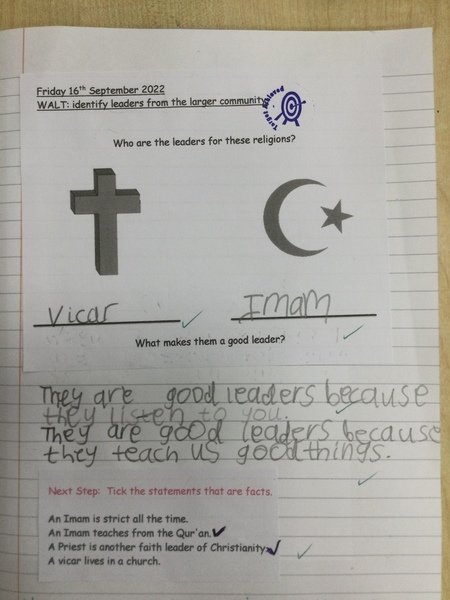 Friday 16th September 2022
WALT: identify leaders from the larger community
Target Achieved
Who are the leaders for these religions?
Vicar
Imam
What makes them a good leader?
They are good leaders because
they listen to you.
They are good leaders because
they teach us good things.
Next Step: Tick the statements that are facts.
An Imam is strict all the time.
An Imam teaches from the Qur'an.
A Priest is another faith leader of Christianity.
A vicar lives in a church.